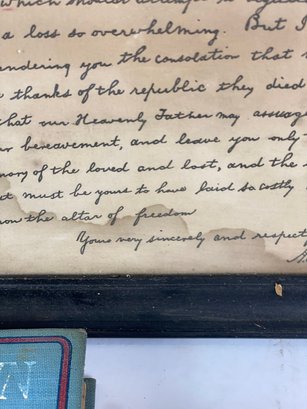 which should attempt to
a loss so overwhelming. But I
ndering you the consolation that
e thanks of the republic they died
hat our Heavenly Father may assuage
ur bereavement, and leave you only
mory of the loved and lost, and the
at must be yours to have laid so costly
pon the altar of freedom
Yours very sincerely and respect
N